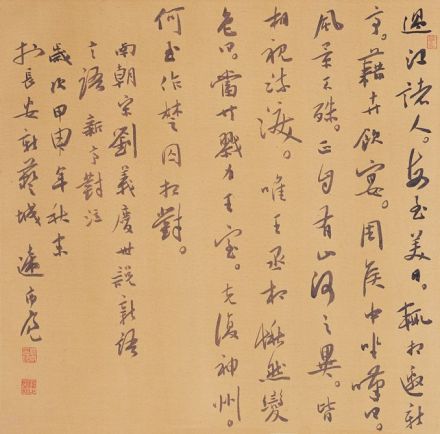 過江諸人。每至美日。輒相邀新
亭。藉卉飲宴。周侯中坐嘆曰。
風景不殊。正自有山河之異。皆
相視流淚。唯王丞相愀然變
色曰。當共戮力王室。克復神州。
何至作楚囚相對。
南朝宋劉義慶世說新語
言語新亭對泣
歲次甲申年秋末
於長安新藝城